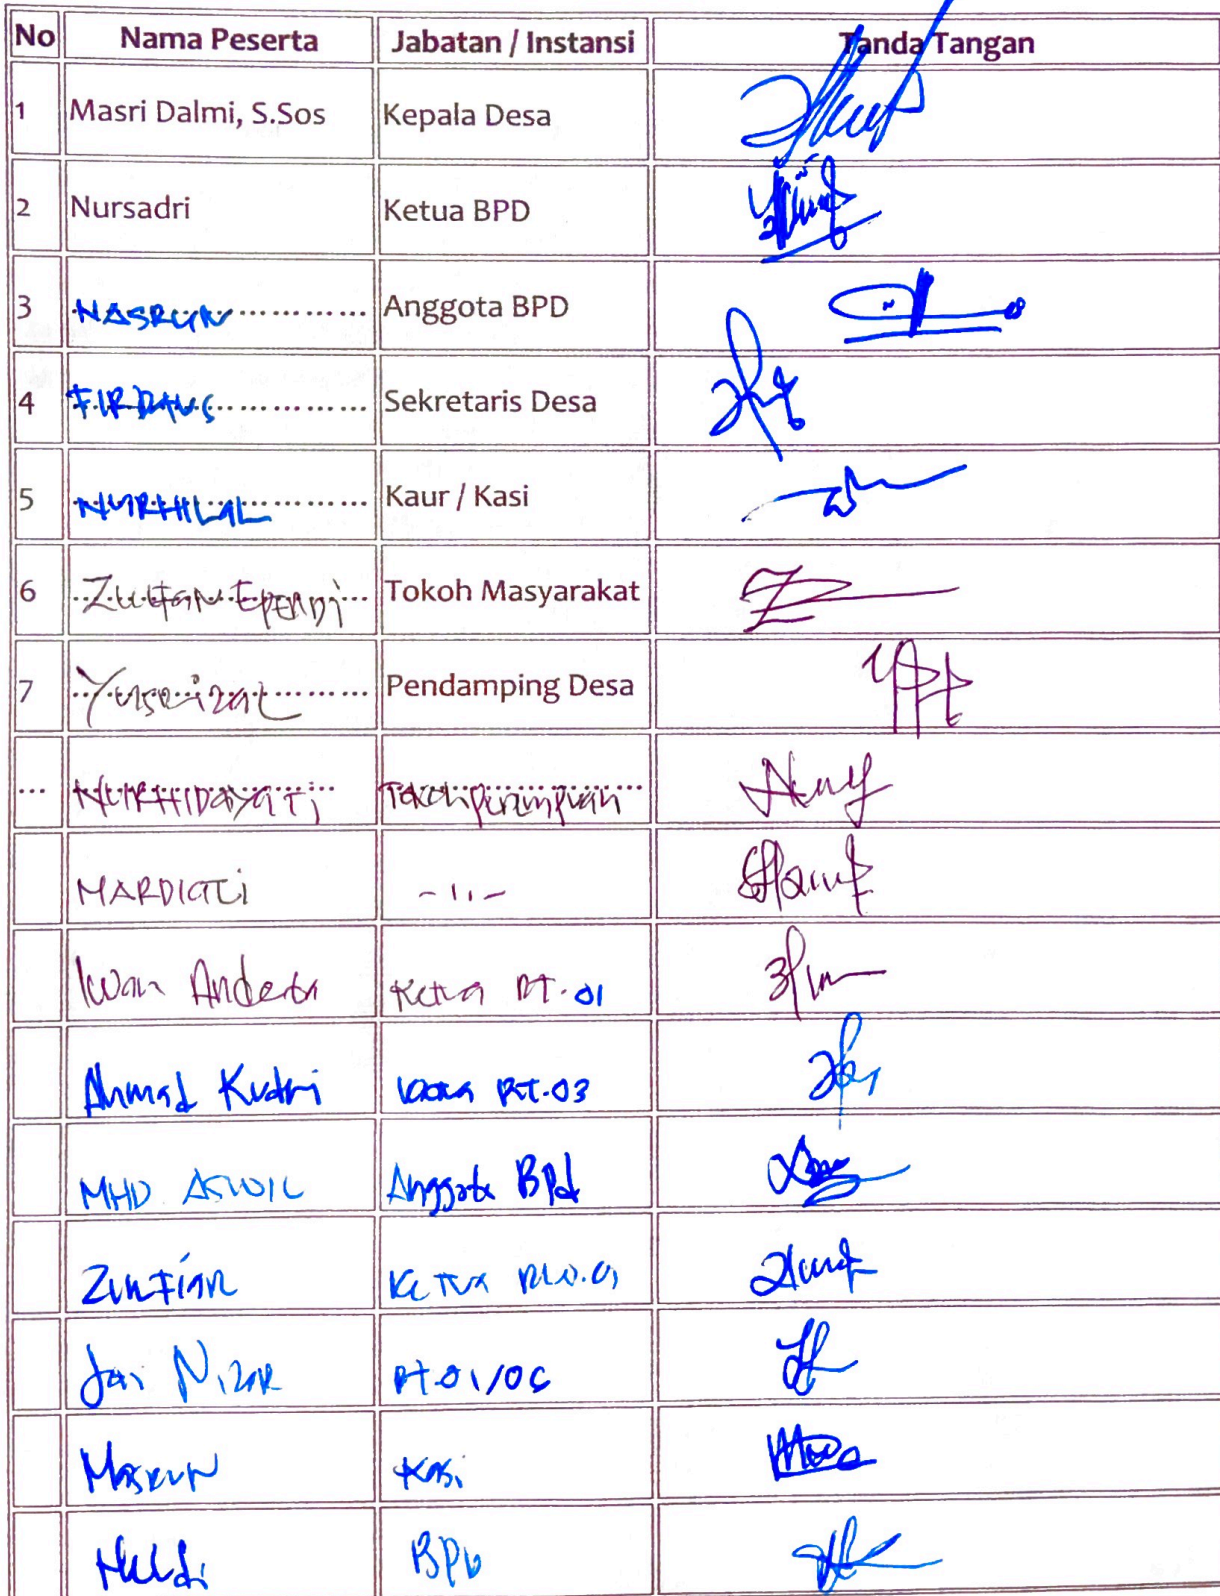 No Nama Peserta Jabatan / Instansi Tanda Tangan
1 Masri Dalmi, S.Sos Kepala Desa
2 Nursadri Ketua BPD
3 NASRUN Anggota BPD
4 FIRDAUS Sekretaris Desa
5 NURHILAL Kaur / Kasi
6 ZULFAN EPENDI Tokoh Masyarakat
7 Yusrizal Pendamping Desa
... NURHIDAYATI Tokoh perempuan
MARDIATI - 11 -
Iwan Anderta Ketua RT. 01
Ahmad Kudri Ketua RT. 03
MHD ASWIL Anggota BPd
ZULFIAR Ketua RW. 01
Jai Nizar RT. 01/06
MASRUN Kasi
BPD